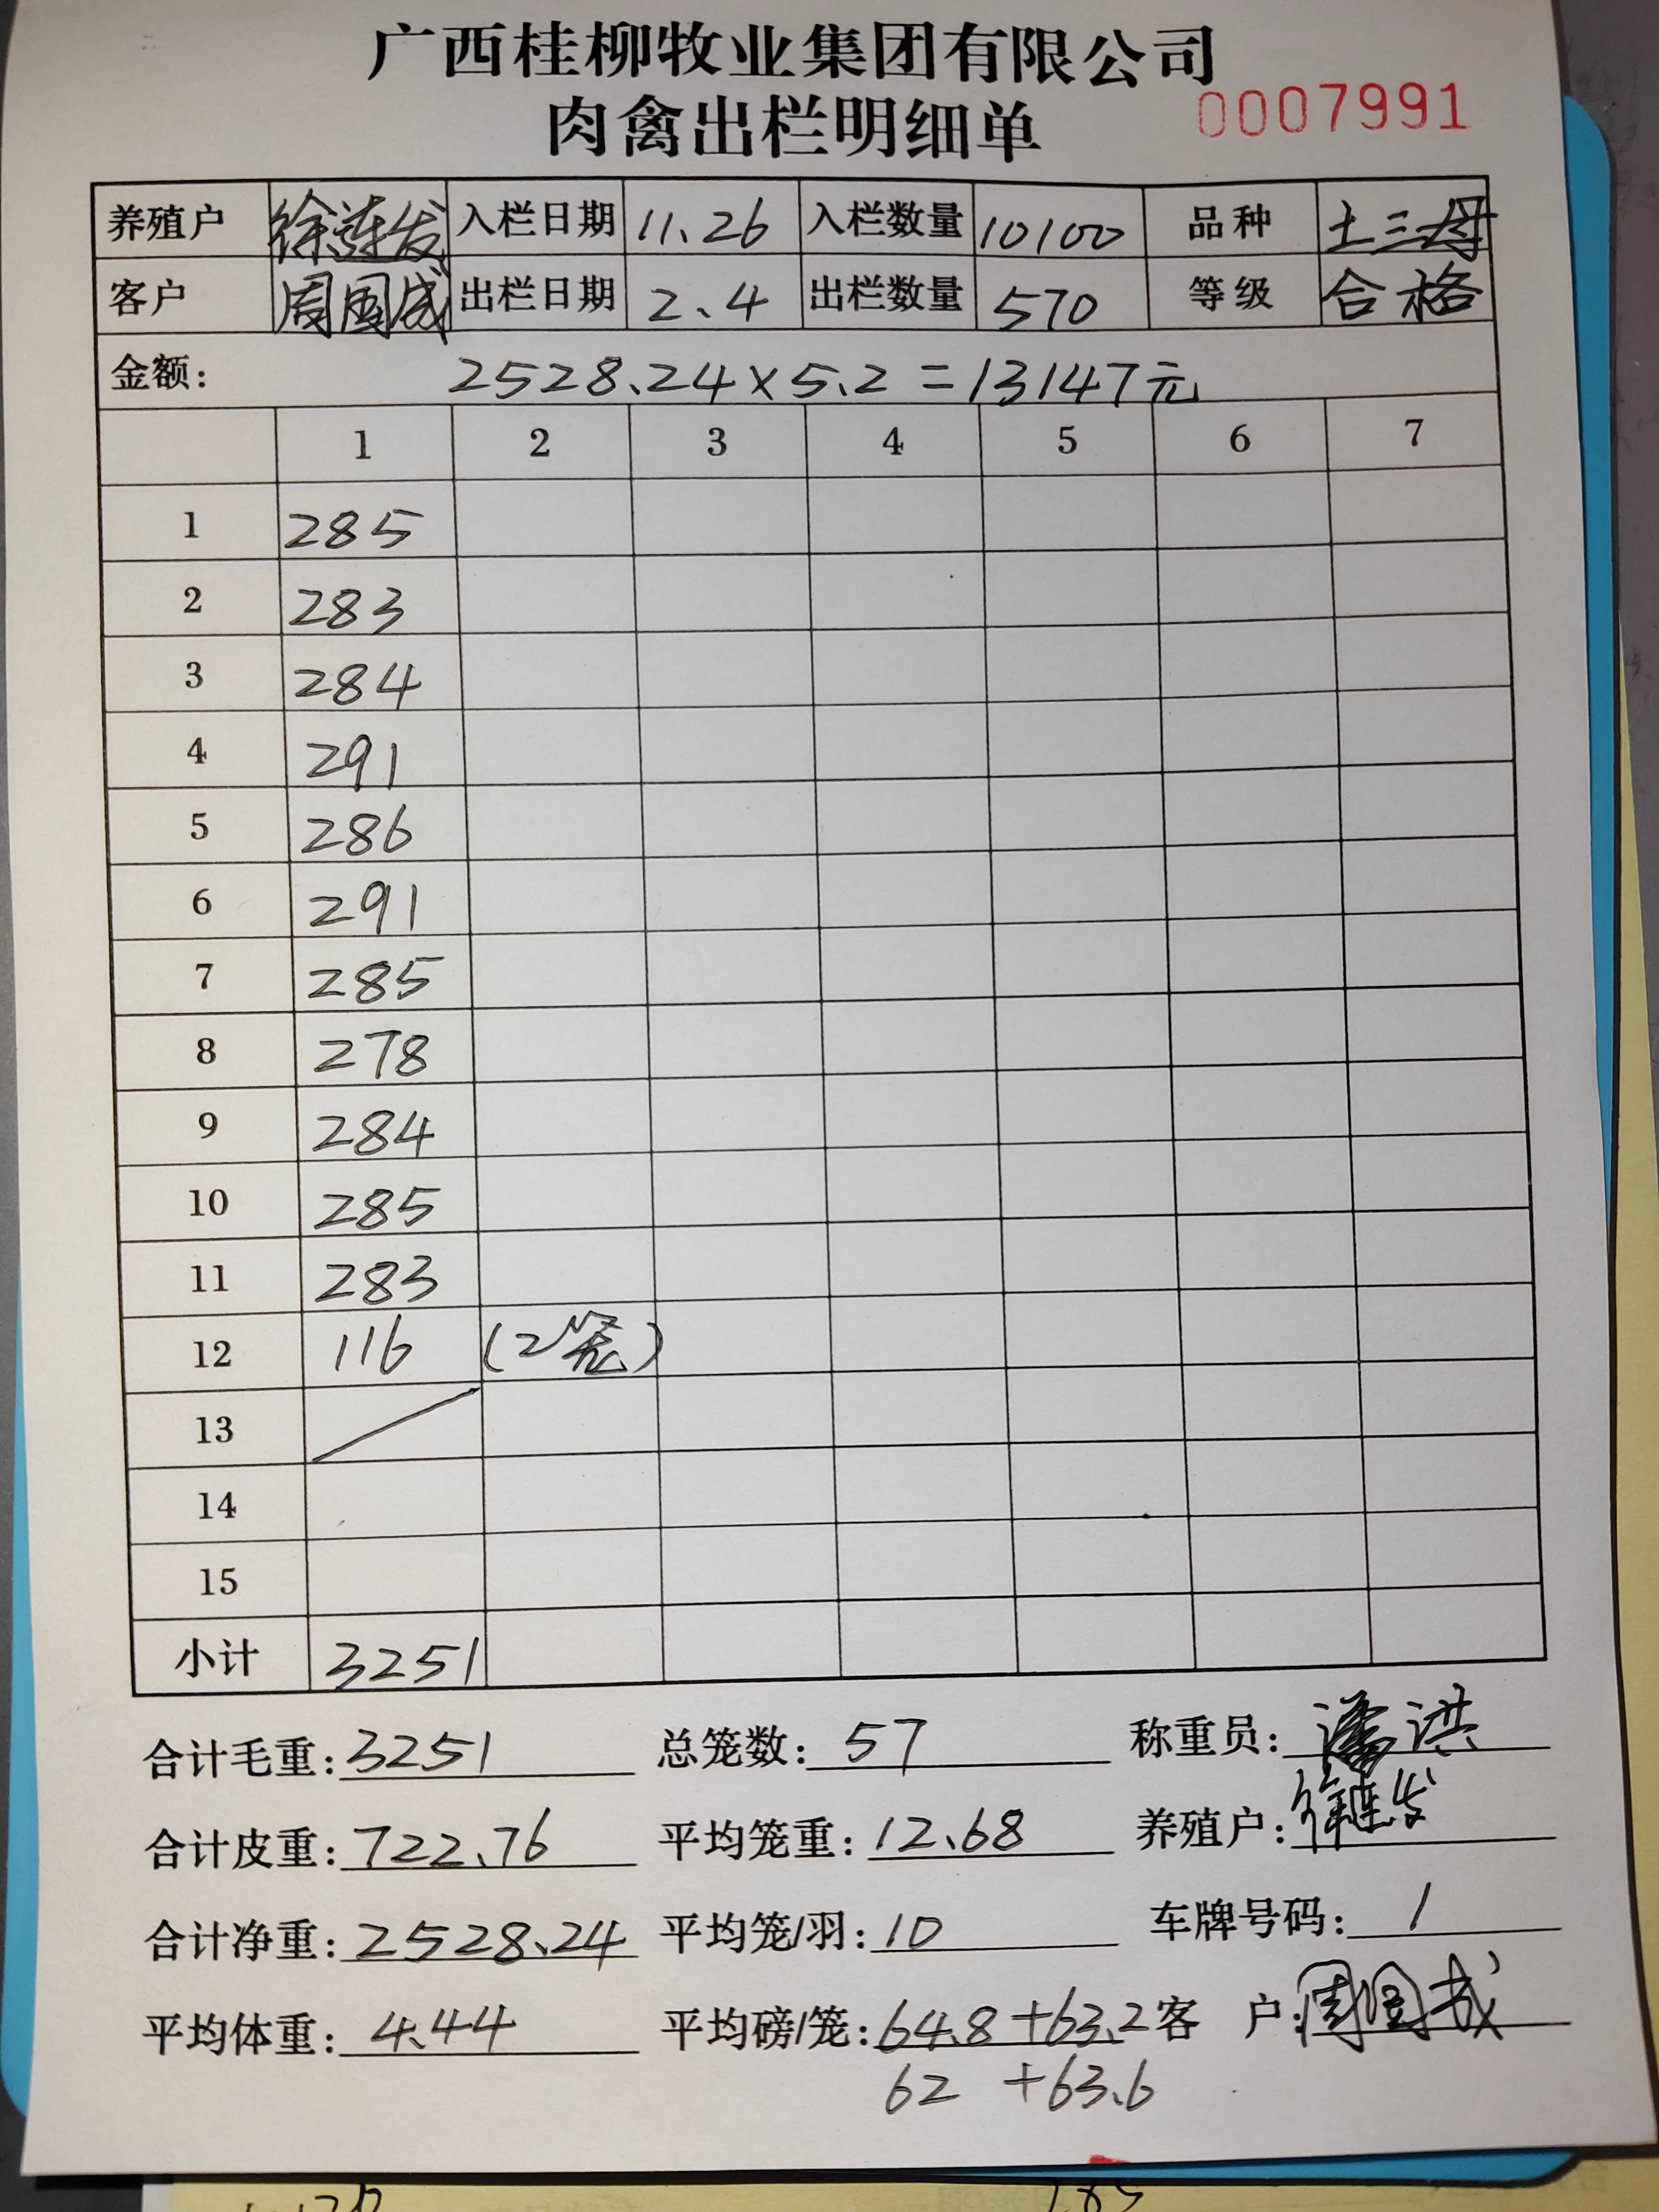 广西桂柳牧业集团有限公司
肉禽出栏明细单 0007991
养殖户 徐连发 入栏日期 11.26 入栏数量 10100 品种 土三母
客户 周国成 出栏日期 2.4 出栏数量 570 等级 合格
金额: 2528.24×5.2=13147元
1 2 3 4 5 6 7
1 285
2 283
3 284
4 291
5 286
6 291
7 285
8 278
9 284
10 285
11 283
12 116 (2笼)
13
14
15
小计 3251
合计毛重: 3251 总笼数: 57 称重员: 潘洪
合计皮重: 722.76 平均笼重: 12.68 养殖户: 徐连发
合计净重: 2528.24 平均笼/羽: 10 车牌号码: 1
平均体重: 4.44 平均磅/笼: 64.8+63.2 客户: 周国成
62 +63.6
285